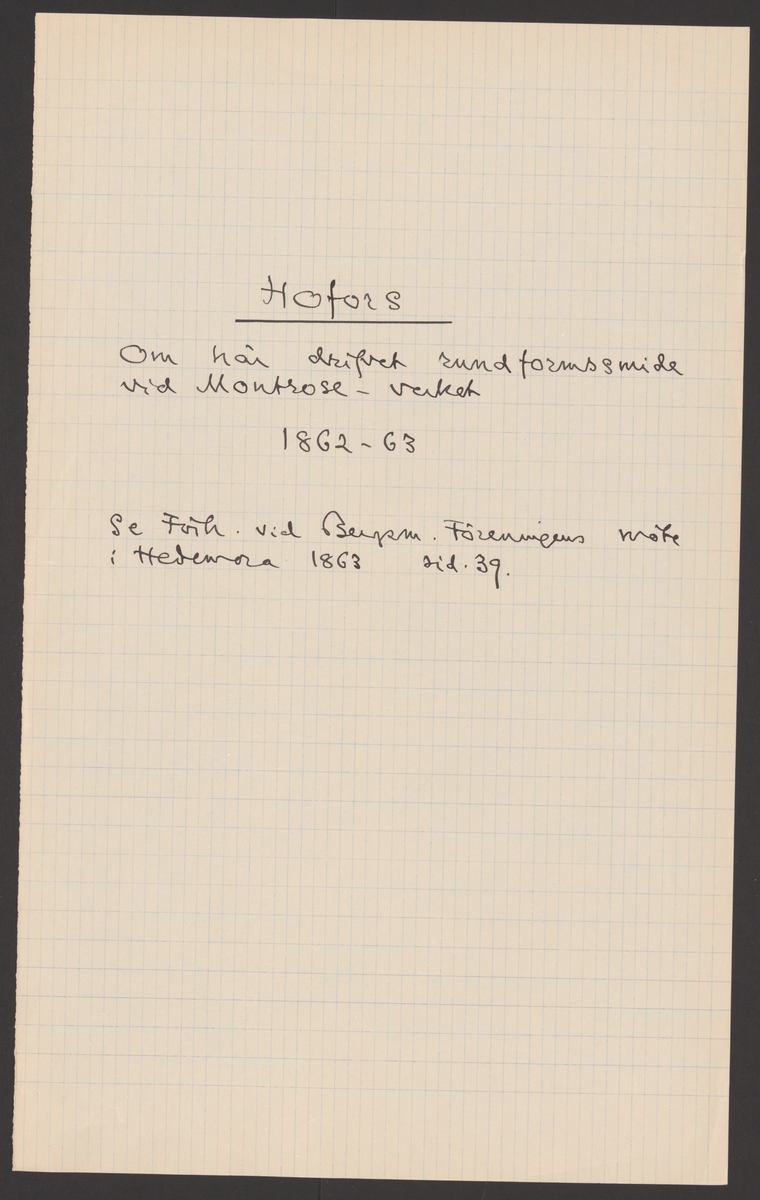 Hofors
Om här drifvet rundformssmide
vid Montrose-verket
1862-63
Se Förh. vid Bergsm. Föreningens möte
i Hedemora 1863 sid. 39.